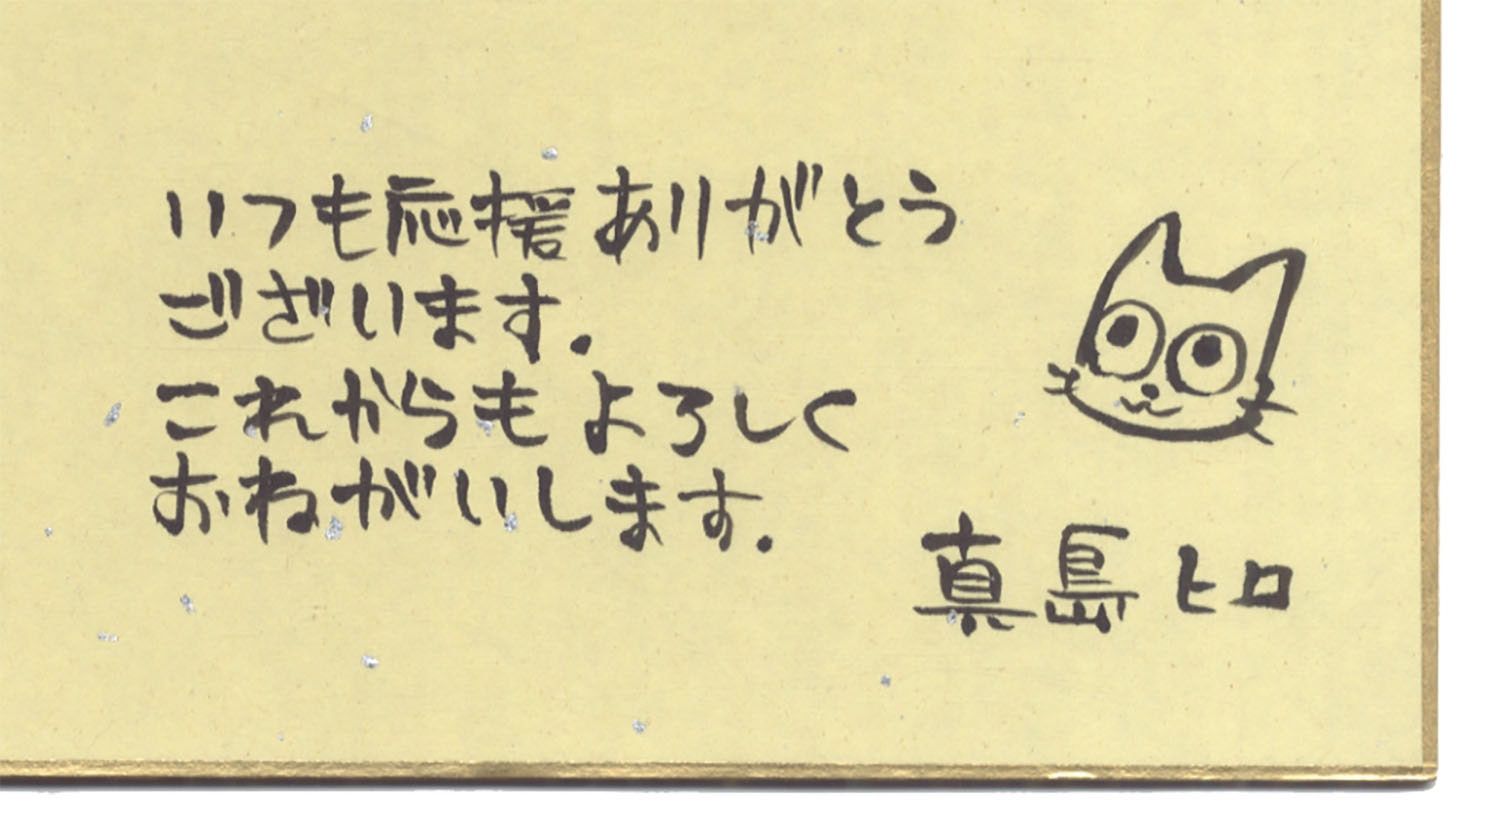 いつも応援ありがとう
ございます.
これからもよろしく
おねがいします.
真島ヒロ